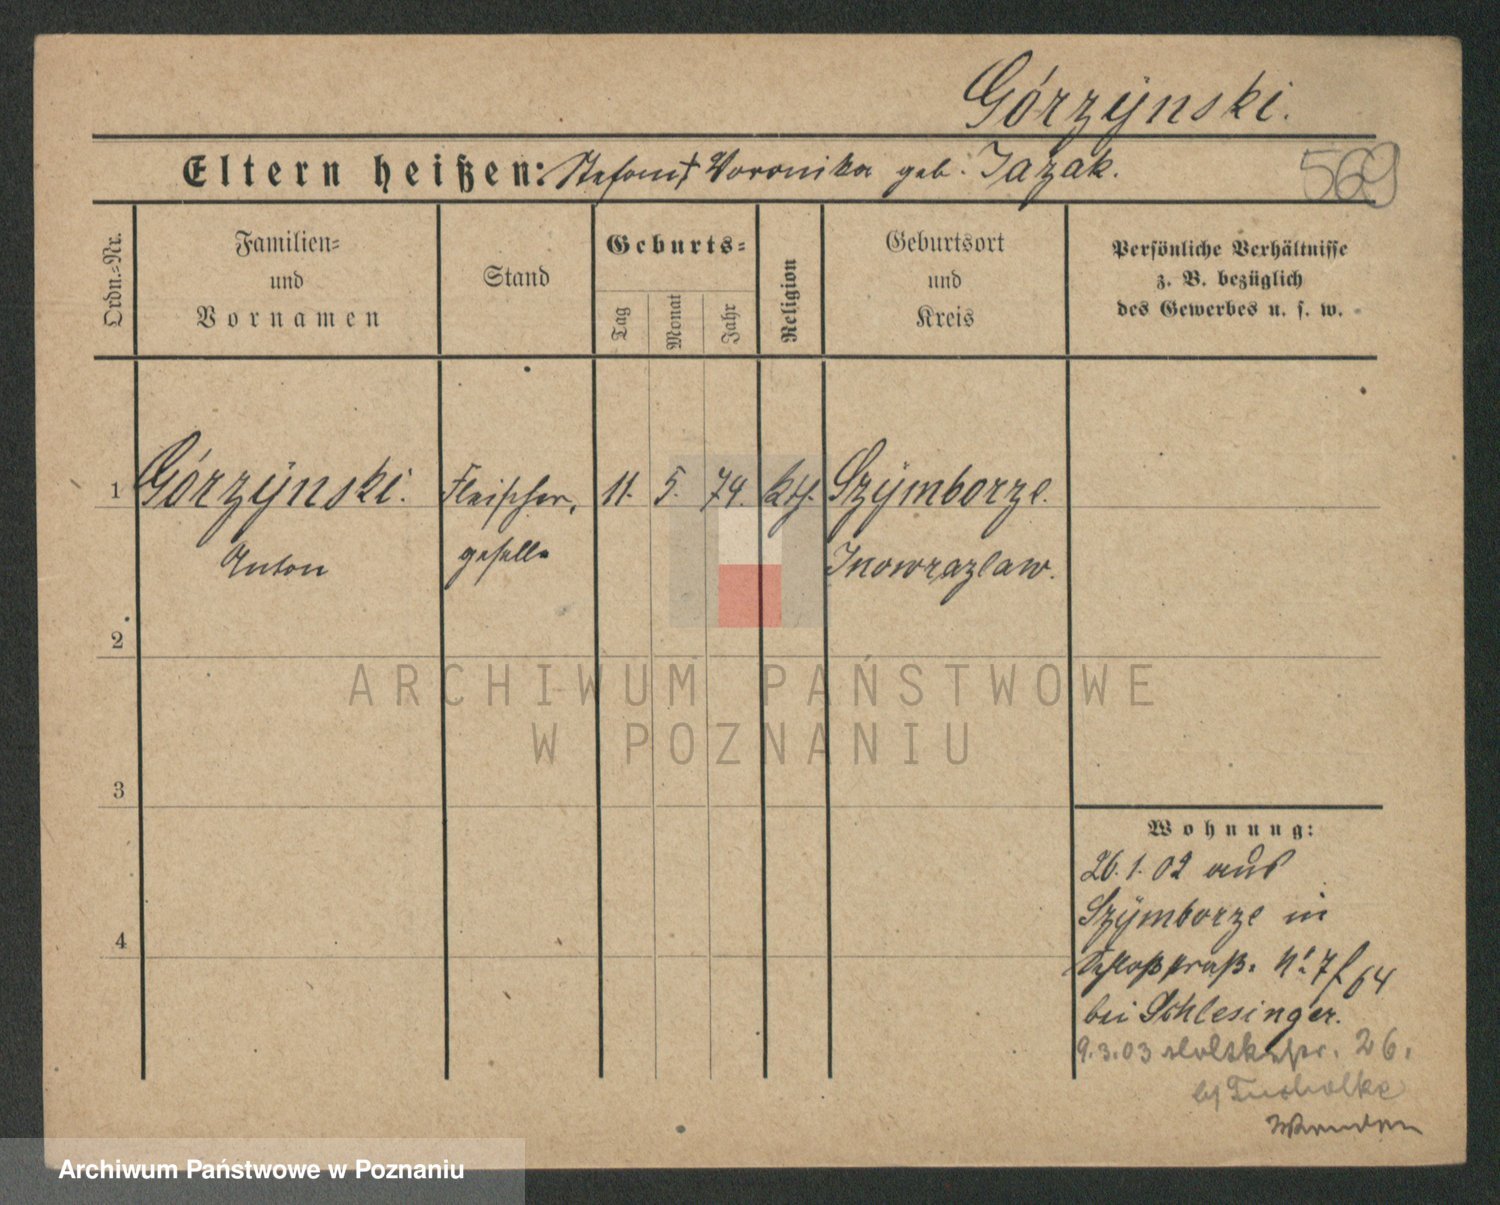 Górzÿnski.
Eltern heißen: Stefan † Veronika geb. Jazak.
569
Ordn.=Nr.
Familien=
und
Vornamen
Stand
Geburts=
Tag
Monat
Jahr
Religion
Geburtsort
und
Kreis
Persönliche Verhältnisse
z. B. bezüglich
des Gewerbes u. s. w.
1 Górzÿnski. Fleischer, 11. 5. 74. kth. Szÿmborze.
Anton gesell. Inowrazlaw.
2
ARCHIWUM PAŃSTWOWE
W POZNANIU
3
Wohnung:
26.1.02 aus
4
Szÿmborze in
Schloßstraß. No 7 f 64
bei Schlesinger.
9.3.03 Moltkestr. 26.
bei Tucholke
Archiwum Państwowe w Poznaniu